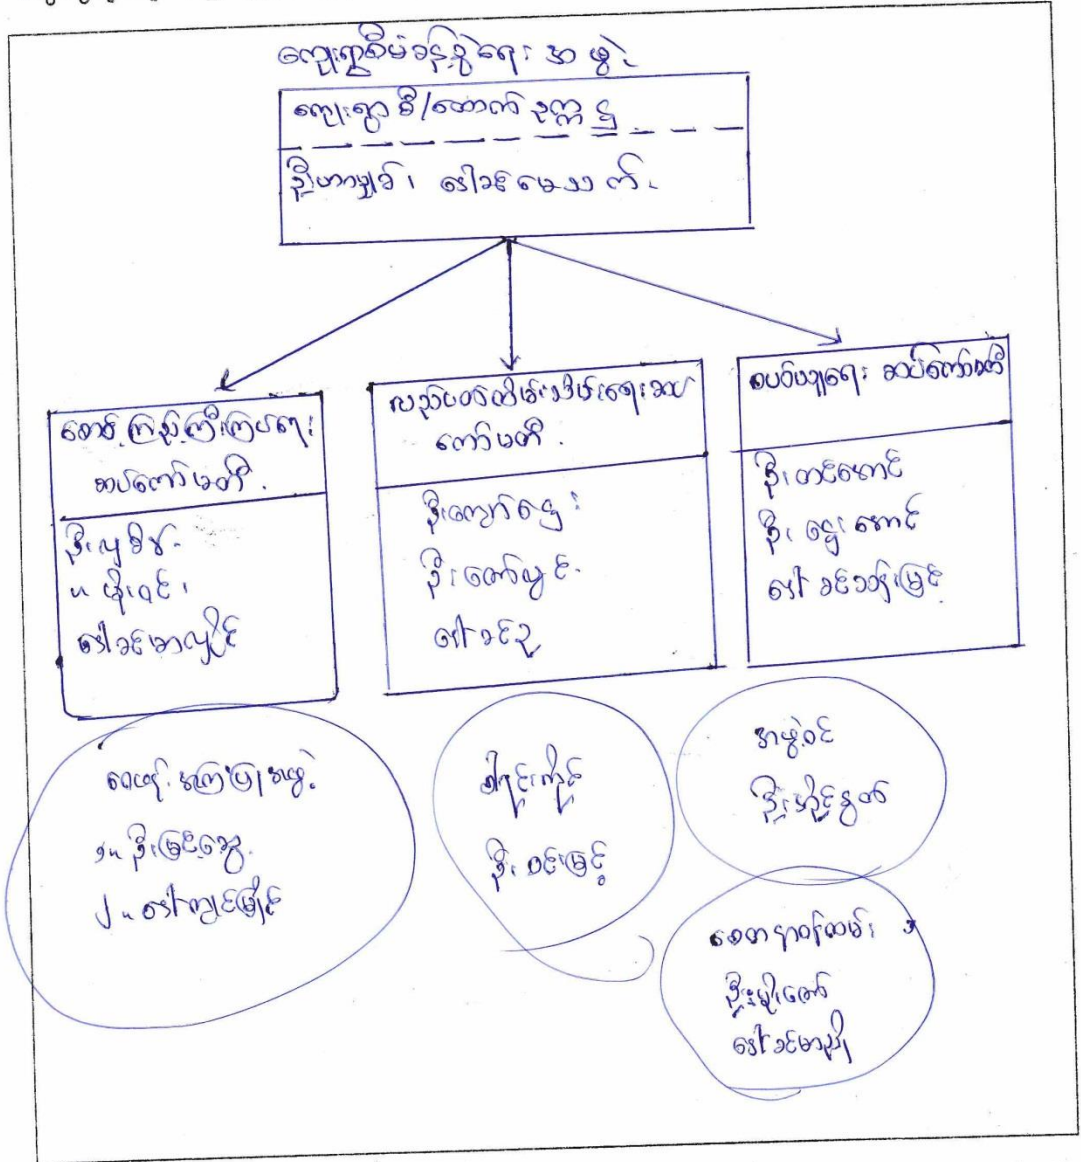 ကျေးရွာစီမံခန့်ခွဲရေး အဖွဲ့
ကျေးရွာ စီ/ထောက် ဥက္ကဋ္ဌ
ဒေါ်ခင်မေသက်
စောင့်ကြည့်ကြီးကြပ်ရေး
ဆပ်ကော်မတီ.
ဦးလှစိန်
" မိုးဝင်း
ဒေါ်ခင်မာလှိုင်
လည်ပတ်ထိန်းသိမ်းရေး ဆပ်
ကော်မတီ.
ဦးကျော်ဌေး
ဦးဇော်လွင်
ဒေါ်ခင်ဥ
ဝယ်ယူရေး ဆပ်ကော်မတီ
ဦးတင်အောင်
ဦးဌေးအောင်
ဒေါ်ခင်သန်းမြင့်
အကြံပြုအဖွဲ့
၁။ ဦးမြင့်ဆွေ
၂။ ဒေါ်ကျင်မြိုင်
စာရင်းကိုင်
ဦးဝင်းမြင့်
အဖွဲ့ဝင်
ဦးအိုင်နွတ်
စေတနာ့ဝန်ထမ်း
ဦးမျိုးဇော်
ဒေါ်ခင်မာညို